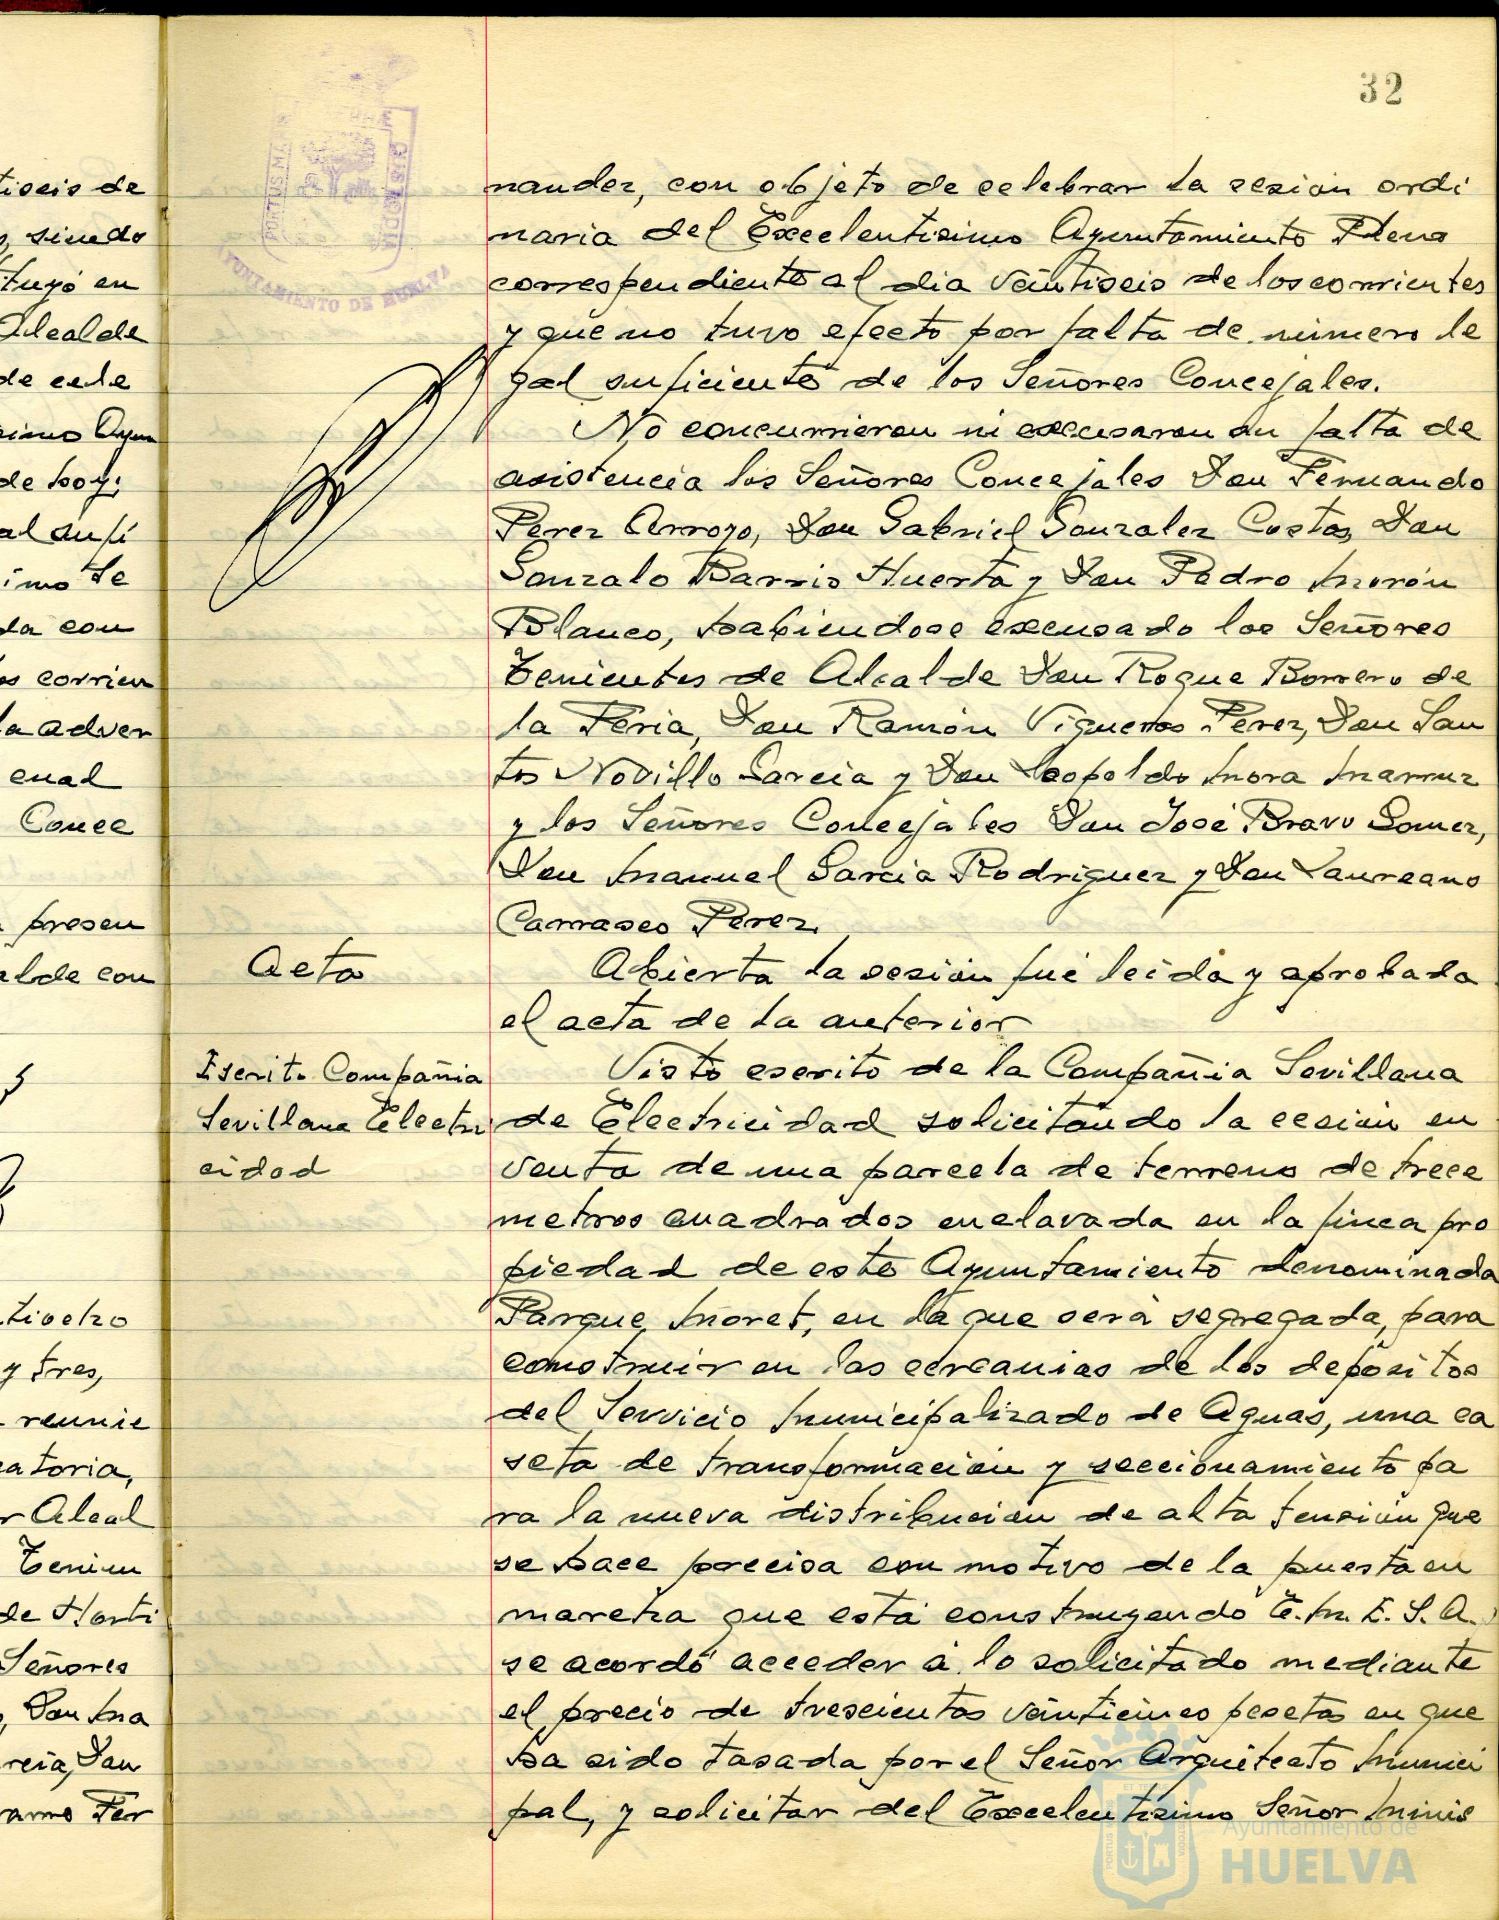 32
tiseis de
, siendo
tuyó en
Alcalde
de cele
simo Ayun
de hoy;
al sufi
imo Te
da con
os corrien
la adver
cual
Conce
presen
alde con
tiocho
y tres,
reunie
catoria,
r Alcal
Tenien
de Horti
Señores
, Don Ma
rcia, Don
ramo Fer
PORTUS MARIS
CUSTODIA
AYUNTAMIENTO DE HUELVA
nandez, con objeto de celebrar la sesión ordi
naria del Excelentisimo Ayuntamiento Pleno
correspondiente al dia veintiseis de los corrientes
y que no tuvo efecto por falta de número le
gal suficiente de los Señores Concejales.
No concurrieron ni excusaron su falta de
asistencia los Señores Concejales Don Fernando
Perez Arroyo, Don Gabriel Gonzalez Costas, Don
Gonzalo Barris Huerta y Don Pedro Morón
Blanco, habiendose excusado los Señores
Tenientes de Alcalde Don Roque Borrero de
la Feria, Don Ramón Vigueras Perez, Don San
tos Novillo Garcia y Don Leopoldo Mora Marruz
y los Señores Concejales Don José Bravo Gomez,
Don Manuel Garcia Rodriguez y Don Laureano
Carrasco Perez.
Acta
Abierta la sesión fué leida y aprobada
el acta de la anterior
Escrito Compañia
Sevillana Electri
cidad
Visto escrito de la Compañia Sevillana
de Electricidad solicitando la cesión en
venta de una parcela de terreno de trece
metros cuadrados enclavada en la finca pro
piedad de este Ayuntamiento denominada
Parque Moret, en la que será segregada, para
construir en las cercanias de los depósitos
del Servicio Municipalizado de Aguas, una ca
seta de transformación y seccionamiento pa
ra la nueva distribución de alta tensión que
se hace precisa con motivo de la puesta en
marcha que está construyendo E.M.E.S.A.
se acordó acceder á lo solicitado mediante
el precio de trescientas veinticinco pesetas en que
ha sido tasada por el Señor Arquitecto Munici
pal, y solicitar del Excelentisimo Señor Minis
Ayuntamiento de
HUELVA